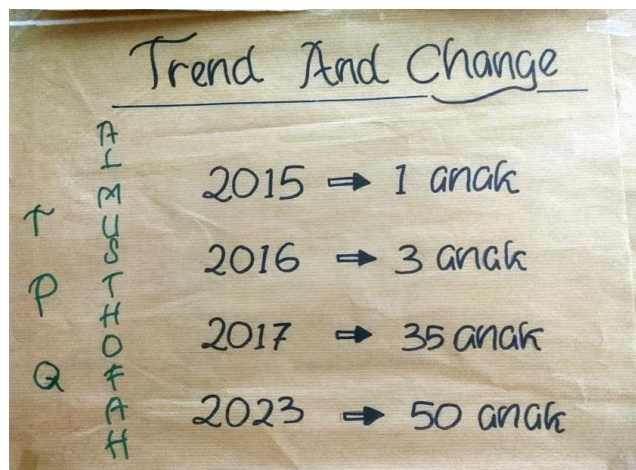 Trend And Change
TPQ
ALMUSTHOFAH
2015 ⇒ 1 anak
2016 ⇒ 3 anak
2017 ⇒ 35 anak
2023 ⇒ 50 anak